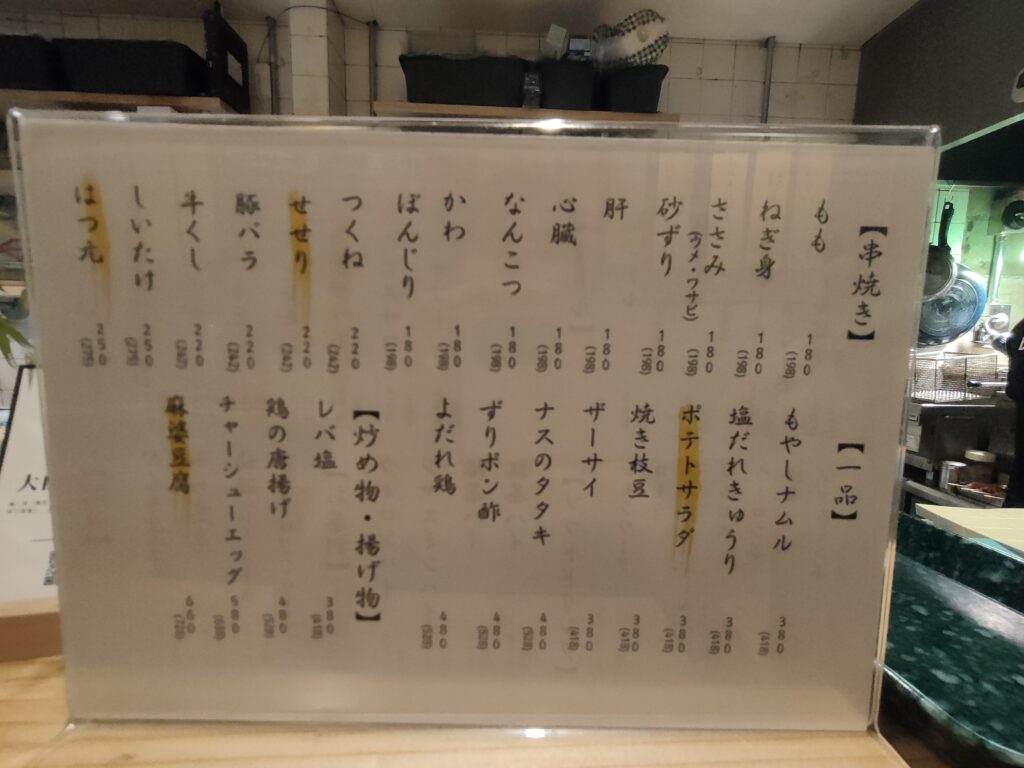 【串焼き】
もも 180 (198)
ねぎ身 180 (198)
ささみ 180 (198)
(ウメ・ワサビ)
砂ずり 180 (198)
肝 180 (198)
心臓 180 (198)
なんこつ 180 (198)
かわ 180 (198)
ぼんじり 180 (198)
つくね 220 (242)
せせり 220 (242)
豚バラ 220 (242)
牛くし 220 (242)
しいたけ 250 (275)
はつ元 250 (275)
【一品】
もやしナムル 380 (418)
塩だれきゅうり 380 (418)
ポテトサラダ 380 (418)
焼き枝豆 380 (418)
ザーサイ 380 (418)
ナスのタタキ 480 (528)
ずりポン酢 480 (528)
よだれ鶏 480 (528)
【炒め物・揚げ物】
レバ塩 380 (418)
鶏の唐揚げ 480 (528)
チャーシューエッグ 580 (638)
麻婆豆腐 660 (726)